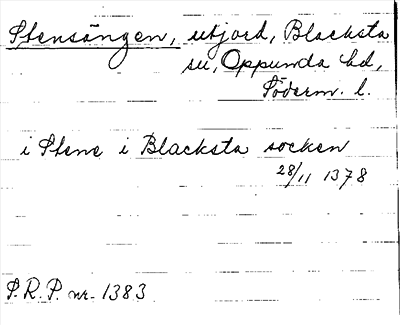 Stensängen, utjord, Blacksta
su, Oppunda hd,
Söderm. l.
i Stene i Blacksta socken
28/11 1378
S.R.P. nr. 1383